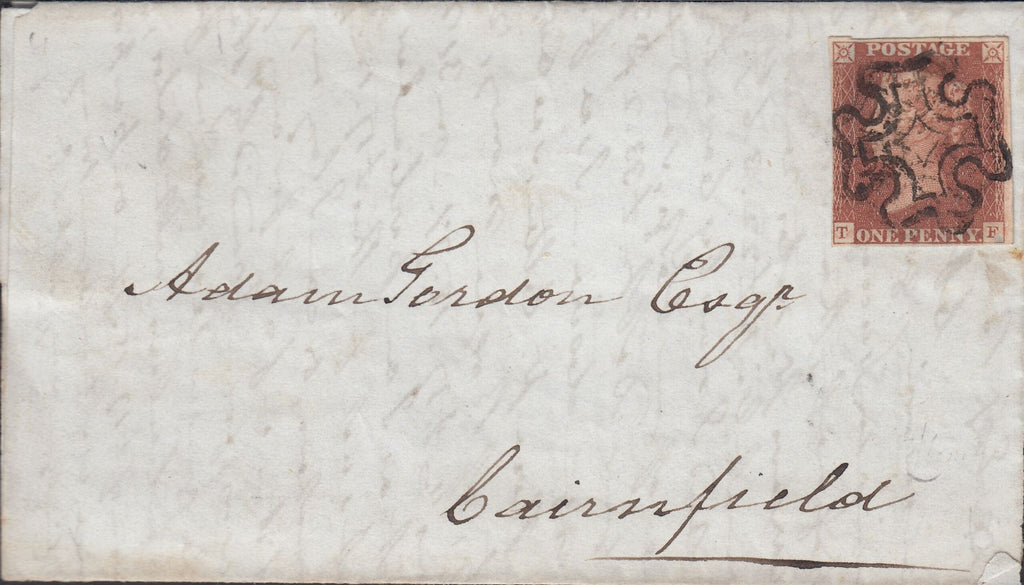 POSTAGE
T ONE PENNY. F
Adam Gordon Esqr
Cairnfield